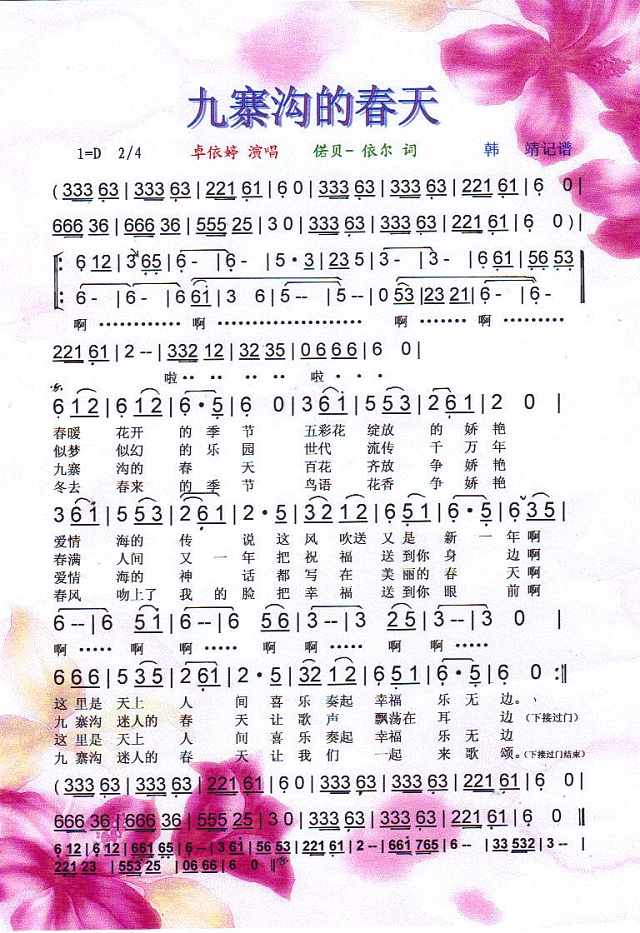 九寨沟的春天
1=D 2/4 卓依婷 演唱 偌贝- 依尔 词 韩 靖记谱
( 333 63 | 333 63 | 221 61 | 6 0 | 333 63 | 333 63 | 221 61 | 6 0 |
666 36 | 666 36 | 555 25 | 3 0 | 333 63 | 333 63 | 221 61 | 6 0 ) |
6 12 | 3 65 | 6 - | 6 - | 5 • 3 | 23 5 | 3 - | 3 - | 6 61 | 56 53
6 - | 6 - | 6 61 | 3 6 | 5 -- | 5 -- | 0 53 | 23 21 | 6 - | 6 -
啊 ············ 啊 ····················· 啊 ········ 啊 ············
221 61 | 2 -- | 332 12 | 32 35 | 0 6 6 6 | 6 0 |
啦 ·· ·· ·· 啦 · · ·
6 12 | 6 12 | 6 • 5 | 6 0 | 3 61 | 5 53 | 2 61 | 2 0 |
春暖 花开 的 季 节 五彩花 绽放 的 娇 艳
似梦 似幻 的 乐 园 世代 流传 千 万 年
九寨 沟的 春 天 百花 齐放 争 娇 艳
冬去 春来 的 季 节 鸟语 花香 争 娇 艳
3 61 | 5 53 | 2 61 | 2 • 5 | 3 3 2 | 1 2 | 6 • 5 | 6 35 |
爱情 海的 传 说 这 风 吹送 又 是 新 一 年 啊
春满 人间 又 一 年 把 祝 福 送 到你 身 边 啊
爱情 海的 神 话 都 写 在 美 丽的 春 天 啊
春风 吻上了 我 的 脸 把 幸 福 送 到你 眼 前 啊
6 -- | 6 53 | 6 -- | 6 56 | 3 -- | 3 23 | 6 -- | 6 -- |
啊 ····· 啊 ····· 啊 ····· 啊 ·····
6 6 6 | 5 35 | 2 61 | 2 • 5 | 3 32 | 1 12 | 6 51 | 6 • 5 | 6 0 :‖
这 里是 天上 人 间 喜 乐 奏起 幸福 乐 无 边。
九 寨沟 迷人的 春 天 让 歌 声 飘荡 在 耳 边 (下接过门)
这 里是 天上 人 间 喜 乐 奏起 幸福 乐 无 边
九 寨沟 迷人的 春 天 让 我 们 一起 来 歌 颂。(下接过门结束)
( 333 63 | 333 63 | 221 61 | 6 0 | 333 63 | 333 63 | 221 61 | 6 0 |
666 36 | 666 36 | 555 25 | 3 0 | 333 63 | 333 63 | 221 61 | 6 0 |
6 12 | 6 12 | 661 65 | 6 -- | 3 61 | 56 53 | 2 -- | 2 -- | 661 765 | 6 -- | 6 -- | 33 50 | 332 12 |
221 23 | 553 25 | 0 66 6 | 6 0 ‖